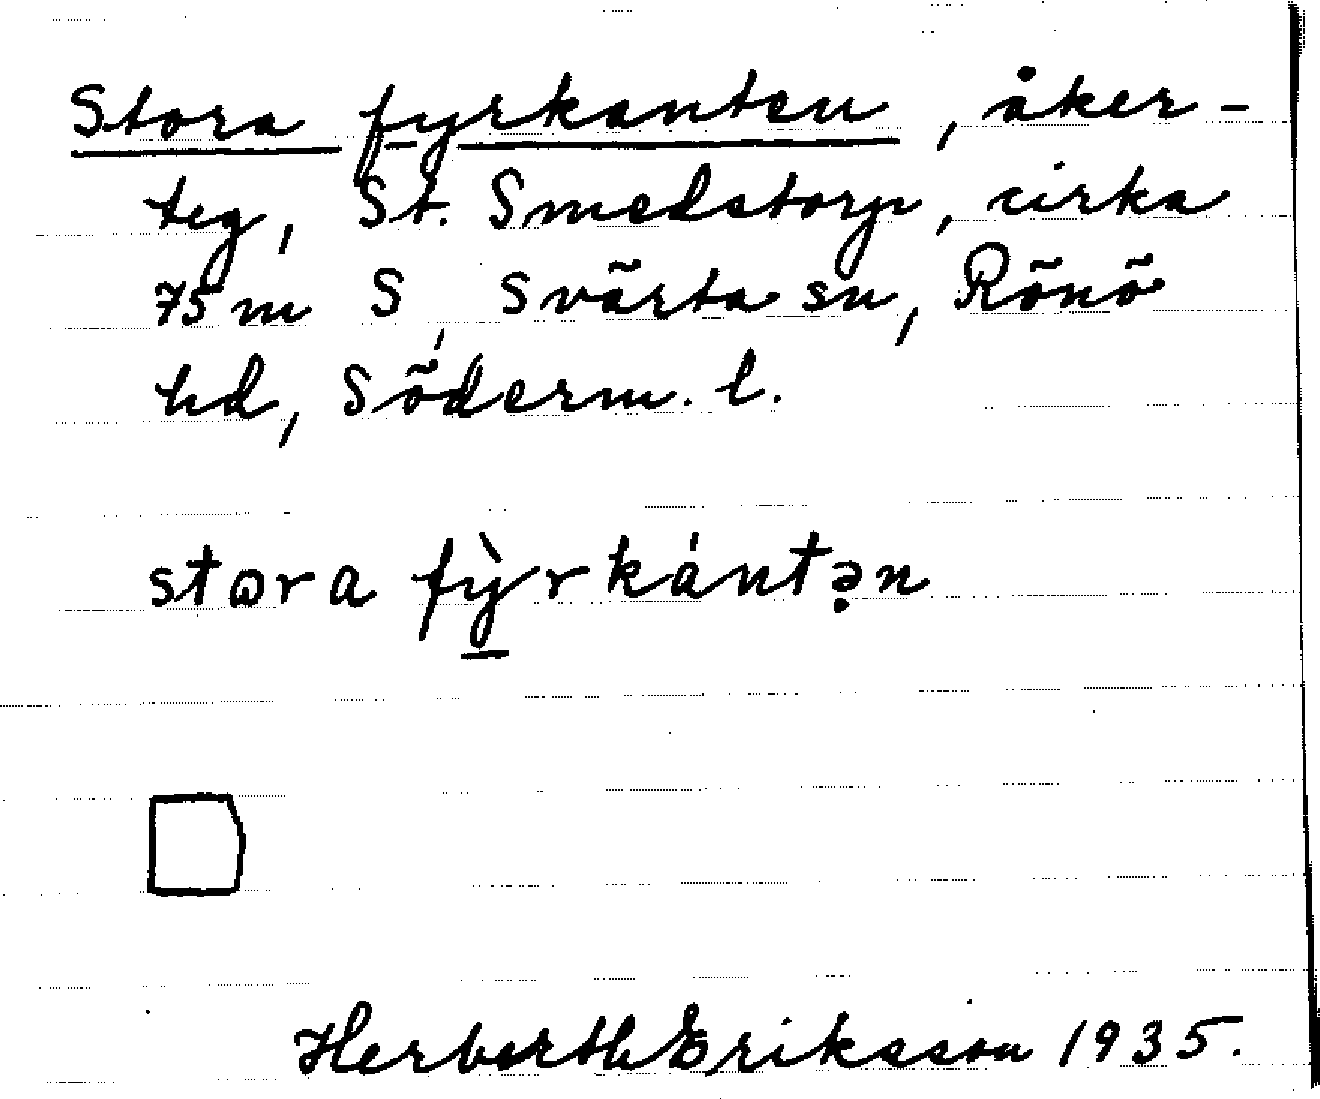 Stora fyrkanten, åker-
teg, St. Smedstorp, cirka
75 m S, Svärta sn, Rönö
hd, Söderm. l.
stɷra fỳ̠rkántə̣n
Herberth Eriksson 1935.